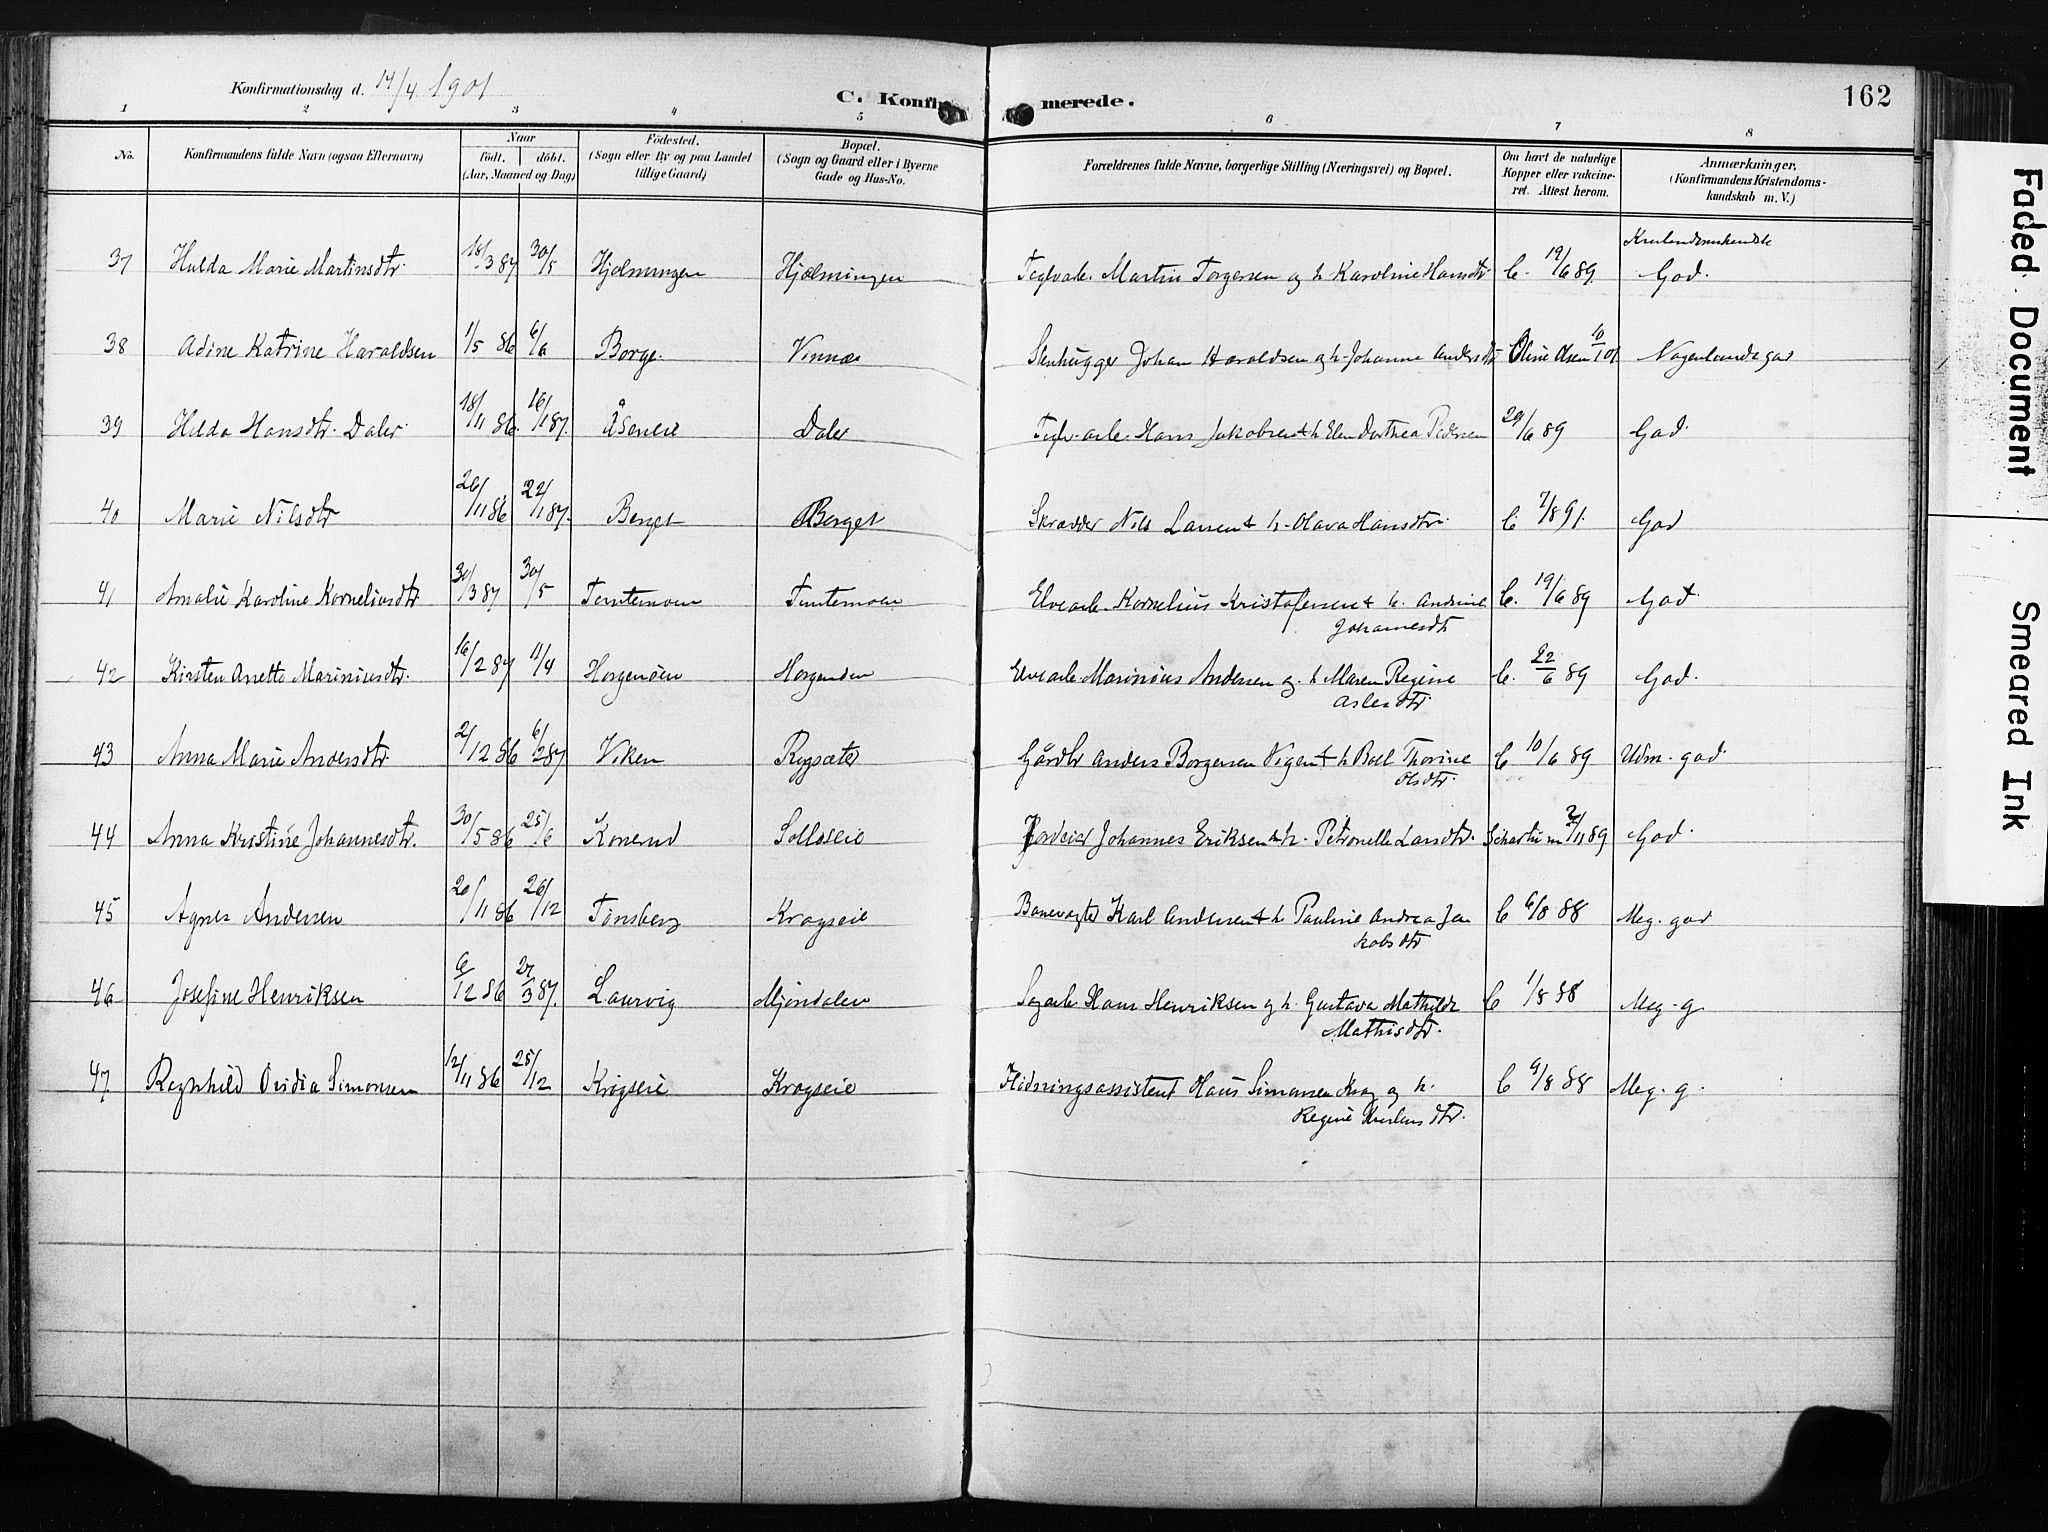 Konfirmationsdag d. 14/4 1901
C. Konfirmerede.
162
1 2 3 4 5 6 7 8
No. Konfirmandens fulde Navn (ogsaa Efternavn) Naar født. døbt. (Aar, Maaned og Dag) Fødested. (Sogn eller By og paa Landet tillige Gaard) Bopæl. (Sogn og Gaard eller i Byerne Gade og Hus-No. Forældrenes fulde Navne, borgerlige Stilling (Næringsvei) og Bopæl. Om havt de naturlige Kopper eller vakcineret. Attest herom. Anmærkninger, (Konfirmandens Kristendomskundskab m. V.)
37 Hulda Marie Martinsdtr. 18/3 87 30/5 Hjelmingen Hjælmingen Teglvarb. Martin Torgersen og h. Karoline Hansdtr. C. 19/6 89. God.
38 Adine Katrine Haraldsen 1/5 86 6/6 Borge. Vinnæs Stenhugger Johan Haraldsen og h. Johanne Andersdtr Oline Olsen 10/1 01 Nogenlunde god
39 Hilda Hansdtr. Daler 18/11 86. 16/1 87. Åseneie Daler Teglv. arb. Hans Jakobsen & h Elen Dorthea Pedersen 29/6 89 God.
40 Marie Nilsdtr 26/11 86 22/1 87. Berget Berget Skrædder Nils Larsen & h. Olava Hansdtr. C 7/8 91. God
41 Amalie Karoline Korneliusdtr 30/3 87 30/5 Temtemoen Temtemoen Elvearb. Kornelius Kristofersen & h. Andrine Johannesdtr C. 19/6 89 God.
42 Kirsten Anette Mariniusdtr. 16/2 87 11/4 Horgenøen Horgenøen Elvearb. Marinius Andersen og h Maren Regine Aslesdtr. C. 22/6 89 God.
43 Anna Marie Andersdtr. 2/12 86 6/2 87 Viken Rygsæter Gårdbr Anders Borgersen Vigen & h Boel Thorine Olsdtr. C 10/6 89 Udm. god.
44 Anna Kristine Johannesdtr. 30/5 86 25/6 Konerud Solløseie Jordeier Johannes Eriksen & h. Petronelle Larsdtr. Schartum 2/11 89 God.
45 Agnes Andersen 20/11 86 26/12 Tønsberg Krogseie Banevogter Karl Andersen & h Pauline Andrea Jakobsdtr C 6/8 88 Meg. god
46 Josefine Henriksen 6/12 86 27/3 87. Laurvig Mjøndalen Sagarb. Hans Henriksen og h. Gustava Mathilde Mathisdtr. C 1/8 88 Meg. g.
47 Ragnhild Ovidia Simonsen 12/11 86 25/12 Krogseie Krogseie Flødningsassistent Hans Simonsen Krog og h. Regine dtr. C 9/8 88 Meg. g.
Faded Document
Smeared Ink